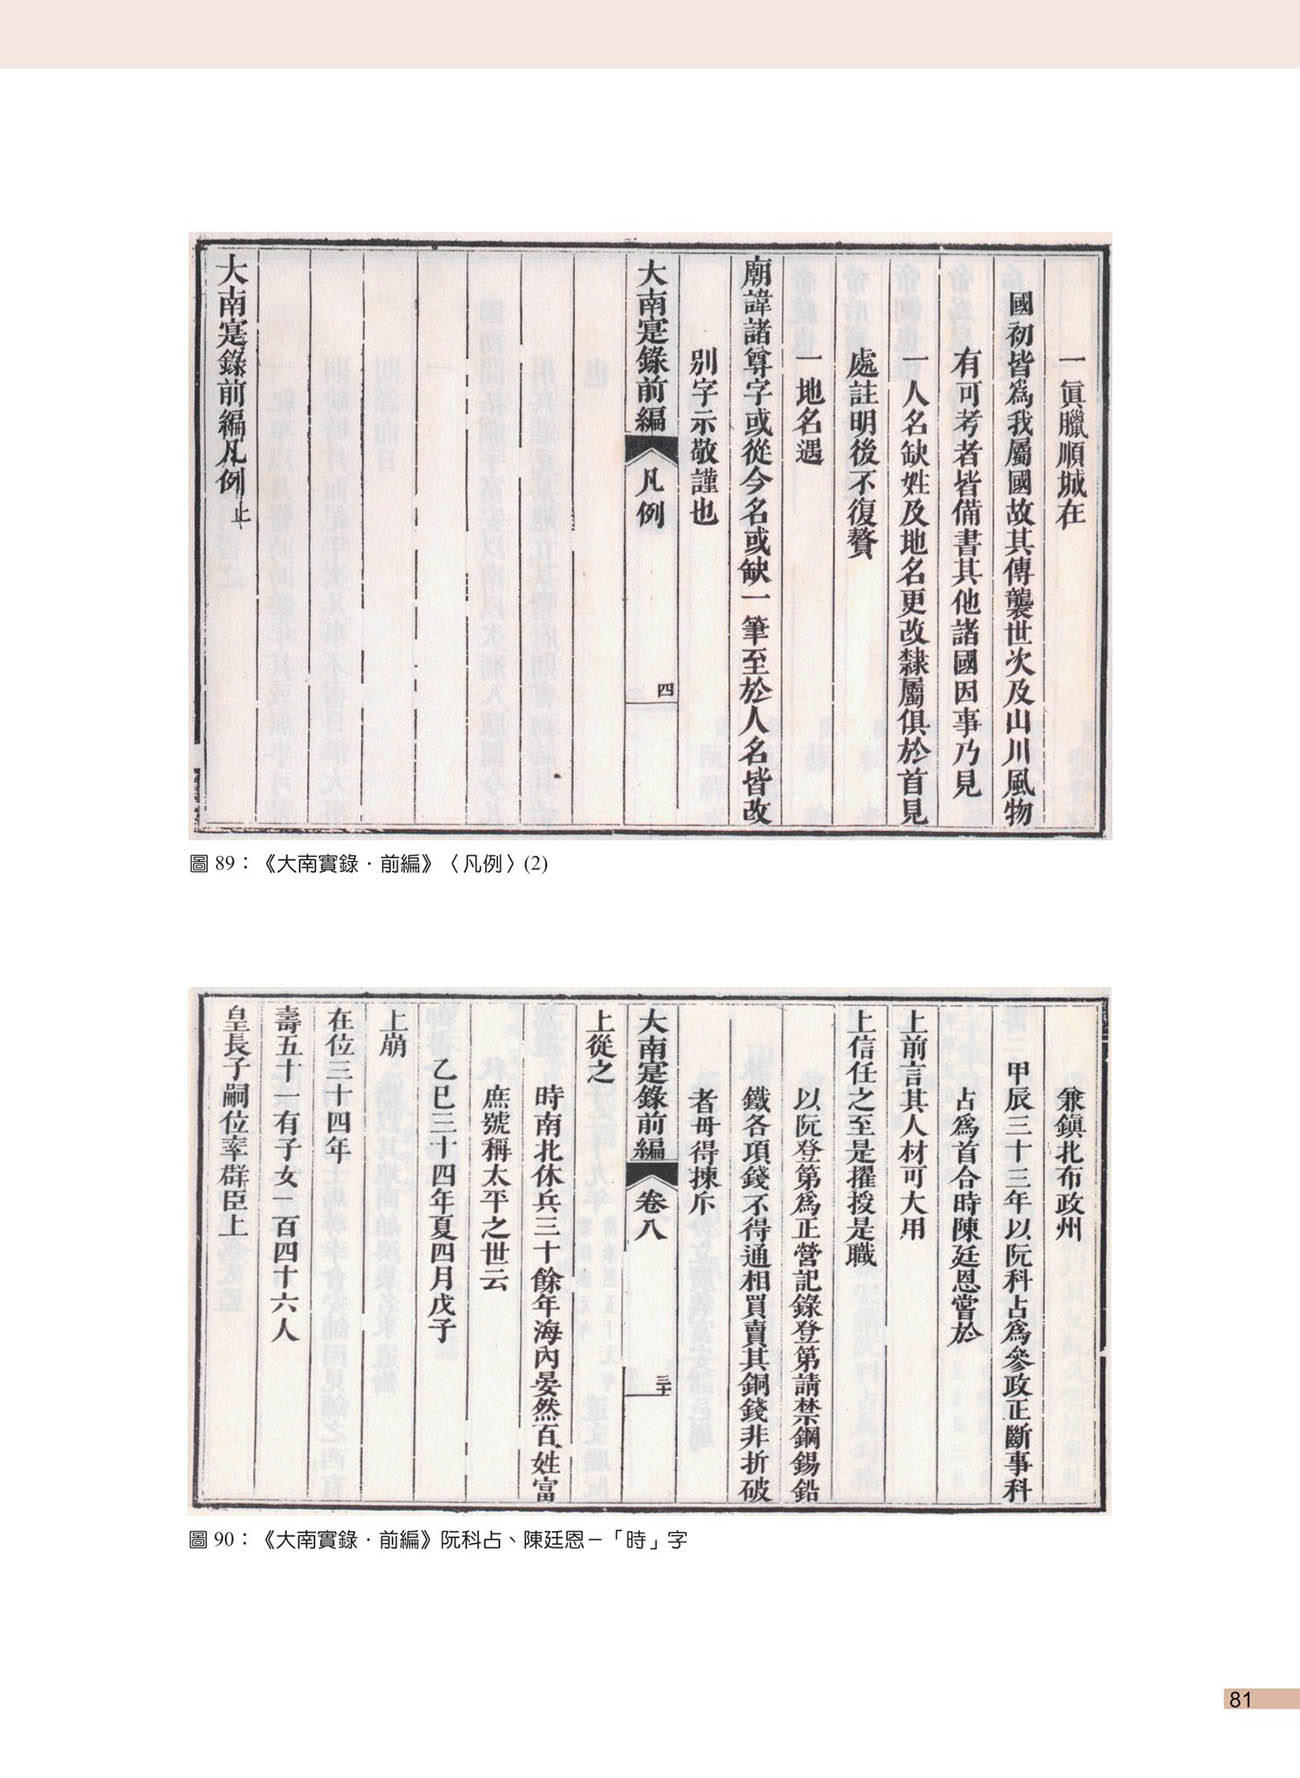 一眞臘順城在
國初皆爲我屬國故其傳襲世次及山川風物
有可考者皆備書其他諸國因事乃見
一人名缺姓及地名更改隸屬俱於首見
處註明後不復贅
一地名遇
廟諱諸尊字或從今名或缺一筆至於人名皆改
别字示敬謹也
大南寔錄前編 凡例 四
大南寔錄前編凡例止
圖 89：《大南實錄．前編》〈凡例〉(2)
兼鎮北布政州
甲辰三十三年以阮科占爲參政正斷事科
占爲首合時陳廷恩嘗於
上前言其人材可大用
上信任之至是擢授是職
以阮登第爲正營記錄登第請禁鋼錫鉛
鐵各項錢不得通相買賣其銅錢非折破
者毋得揀斥
大南寔錄前編 卷八 三十
上從之
時南北休兵三十餘年海內晏然百姓富
庶號稱太平之世云
乙巳三十四年夏四月戊子
上崩
在位三十四年
壽五十一有子女一百四十六人
皇長子嗣位率群臣上
圖 90：《大南實錄．前編》阮科占、陳廷恩－「時」字
81